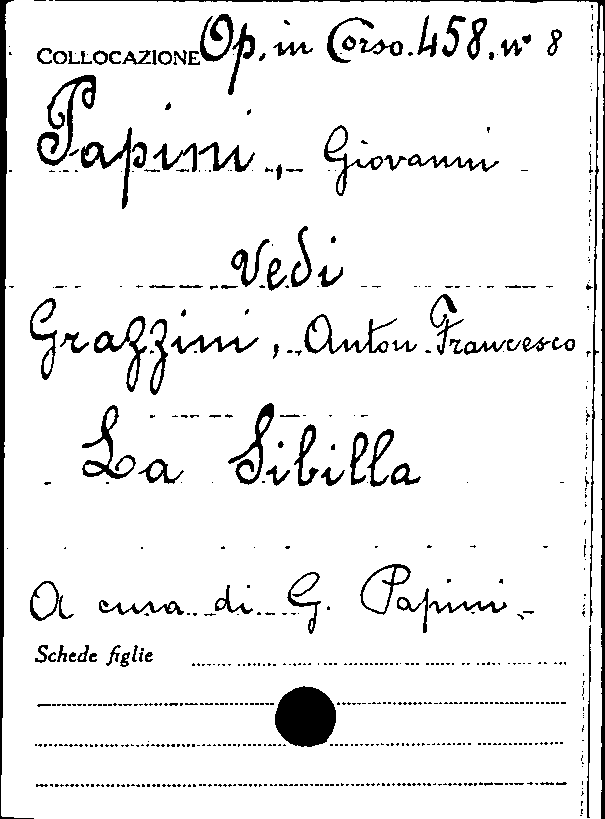 COLLOCAZIONE Op. in Corso. 458. n° 8
Papini, Giovanni
Vedi
Grazzini, Anton Francesco
La Sibilla
A cura di G. Papini.
Schede figlie